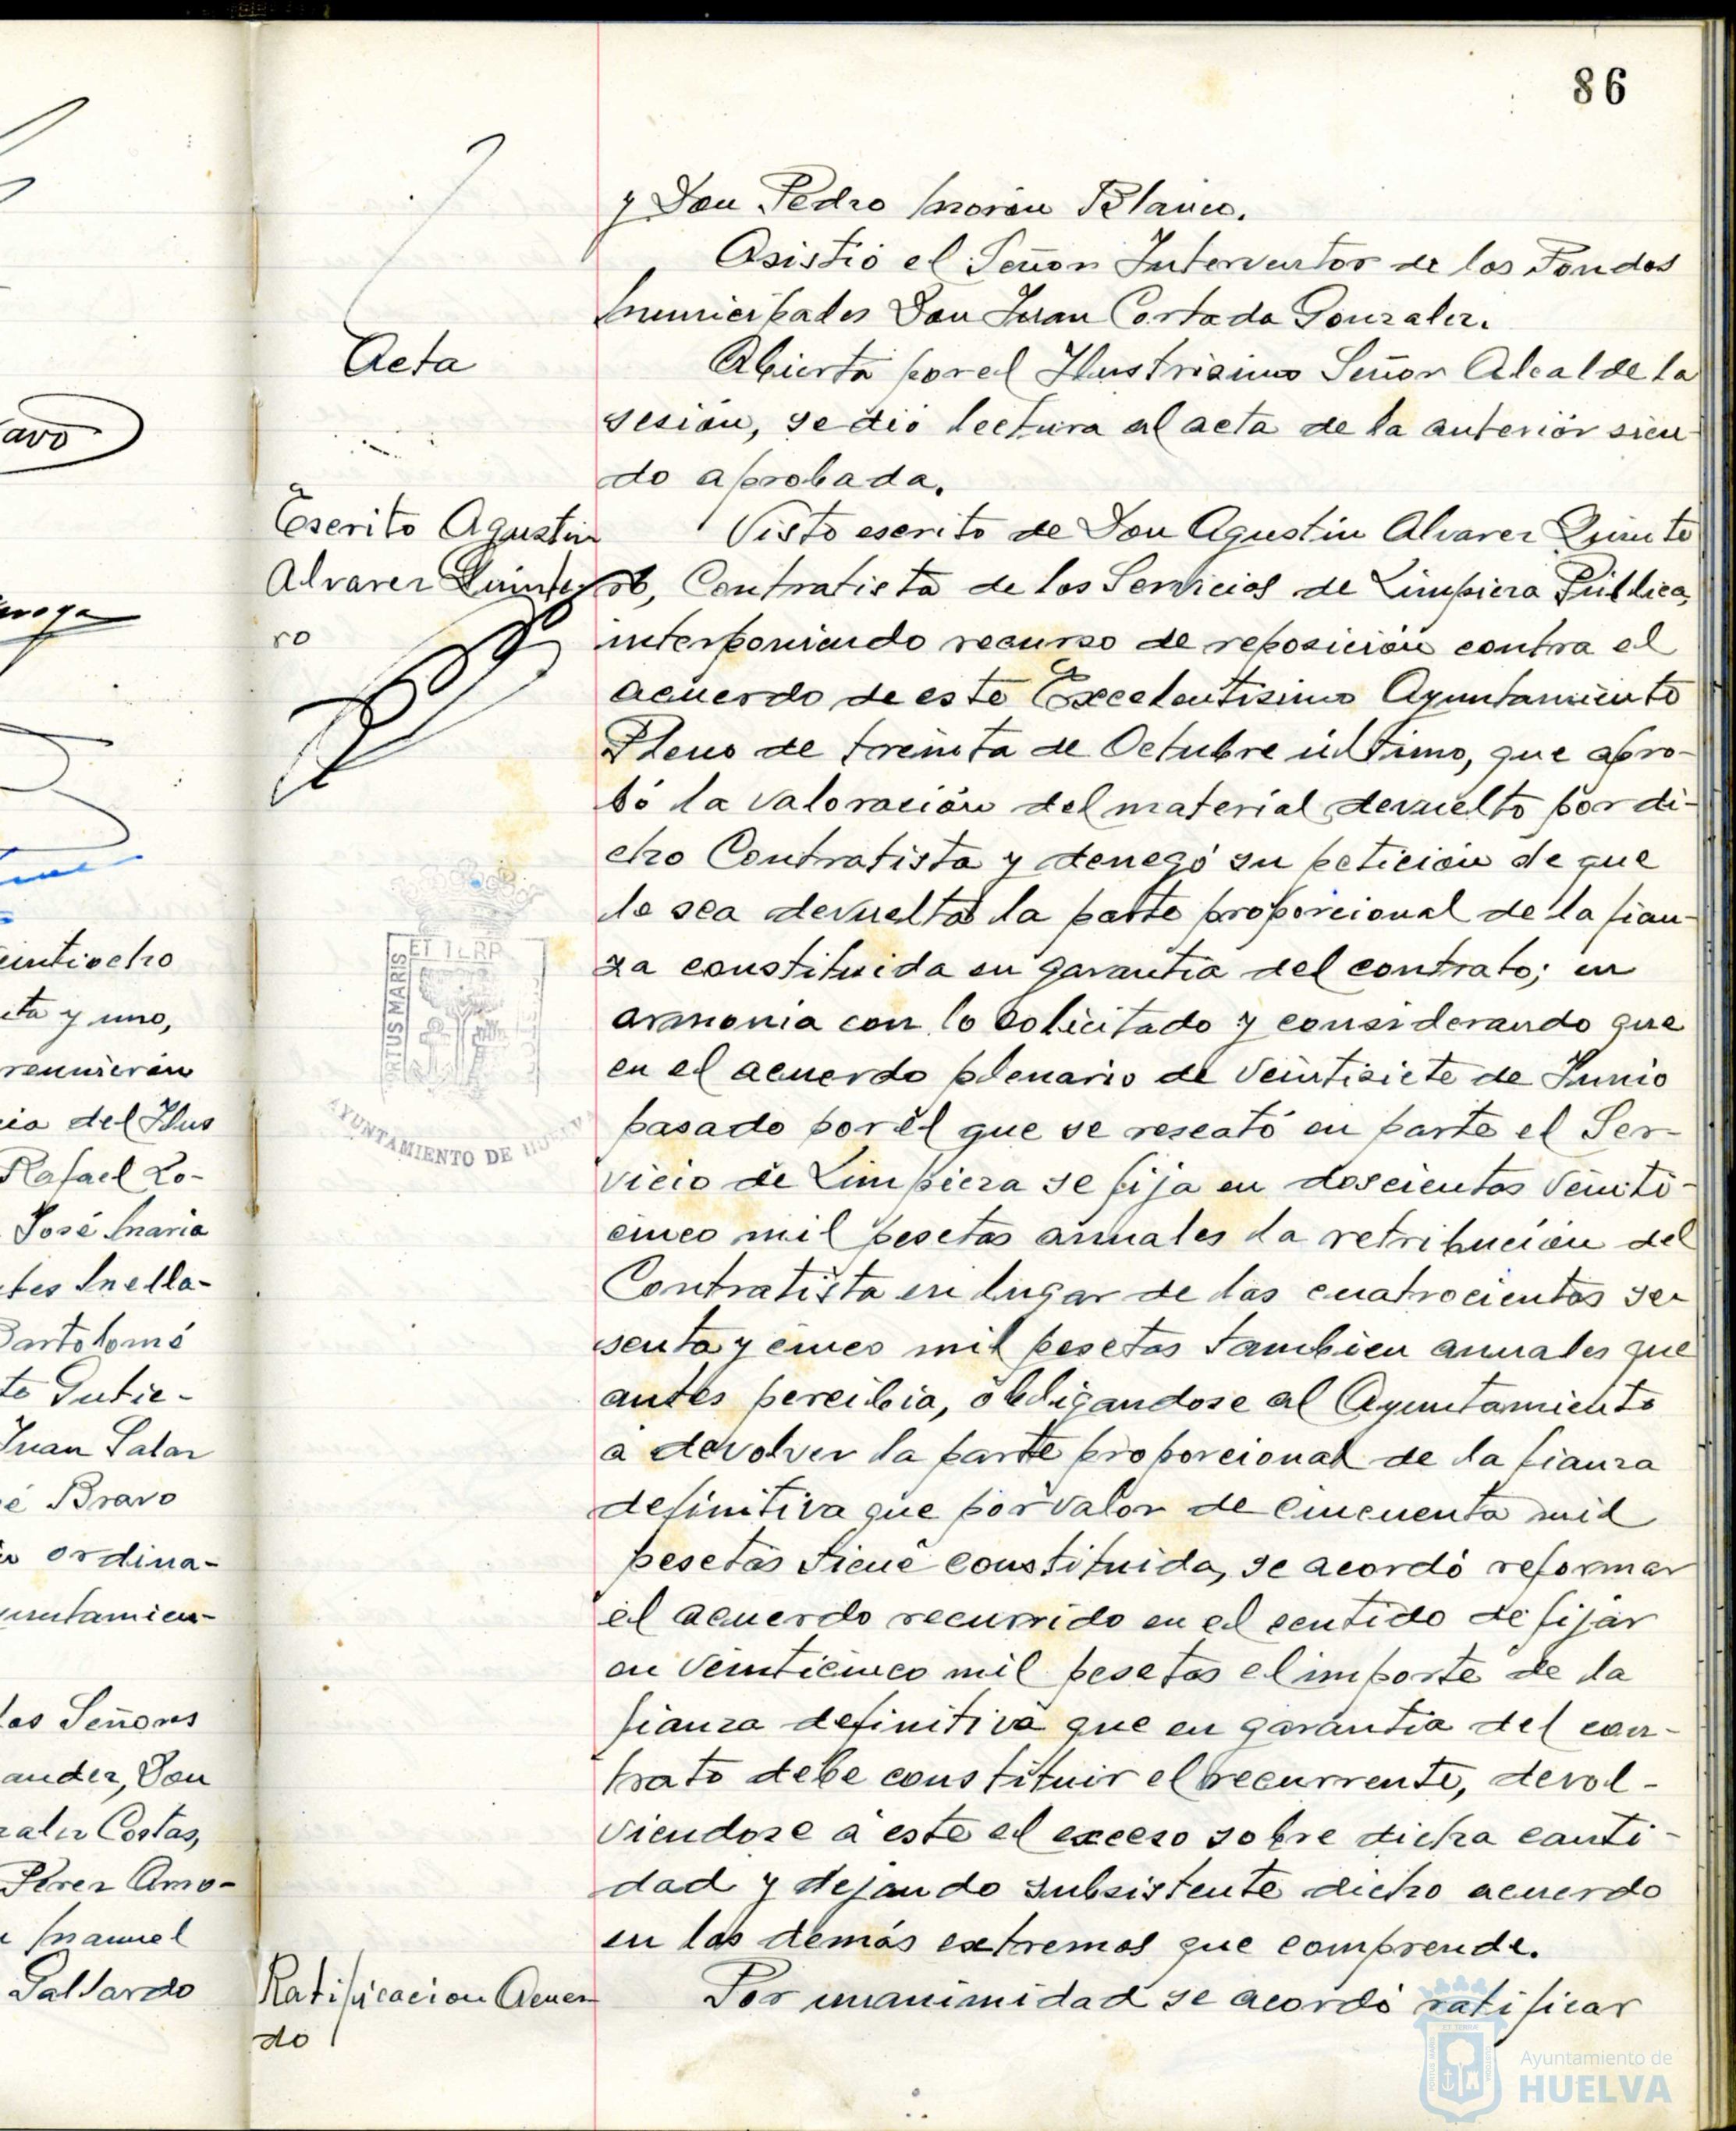 avo
eintiocho
eta y uno,
reunieron
cia del Ilus
Rafael Lo-
José Maria
tes Mella-
Bartolomé
to Gutie-
Juan Salar
é Bravo
ordina-
untamien-
los Señores
ander, Don
zalez Costas,
Perez Amo-
Manuel
Gallardo
86
y Don Pedro Morón Blanco.
Asistió el Señor Interventor de los Fondos
Municipales Don Juan Cortada Gonzalez.
Acta
Abierta por el Ilustrisimo Señor Alcalde la
sesión, se dió lectura al acta de la anterior sien-
do aprobada.
Escrito Agustin
Alvarez Quinte
ro
Visto escrito de Don Agustin Alvarez Quinte
ro, Contratista de los Servicios de Limpieza Pública,
interponiendo recurso de reposición contra el
acuerdo de este Excelentisimo Ayuntamiento
Pleno de treinta de Octubre último, que apro-
bó la valoración del material devuelto por di-
cho Contratista y denegó su petición de que
le sea devuelta la parte proporcional de la fian-
za constituida en garantia del contrato; en
armonia con lo solicitado y considerando que
en el acuerdo plenario de veintisiete de Junio
pasado por el que se rescató en parte el Ser-
vicio de Limpieza se fija en doscientas veinti-
cinco mil pesetas anuales la retribución del
Contratista en lugar de las cuatrocientas se
senta y cinco mil pesetas tambien anuales que
antes percibia, obligandose al Ayuntamiento
a devolver la parte proporcional de la fianza
definitiva que por valor de cincuenta mil
pesetas tiene constituida, se acordó reformar
el acuerdo recurrido en el sentido de fijar
en veinticinco mil pesetas el importe de la
fianza definitiva que en garantia del con-
trato debe constituir el recurrente, devol-
viendose a este el exceso sobre dicha canti-
dad y dejando subsistente dicho acuerdo
en los demás extremos que comprende.
Ratificacion Acuer
do
Por unanimidad se acordó ratificar
PORTUS MARIS
ET TERR
AYUNTAMIENTO DE HUELVA
Ayuntamiento de
HUELVA